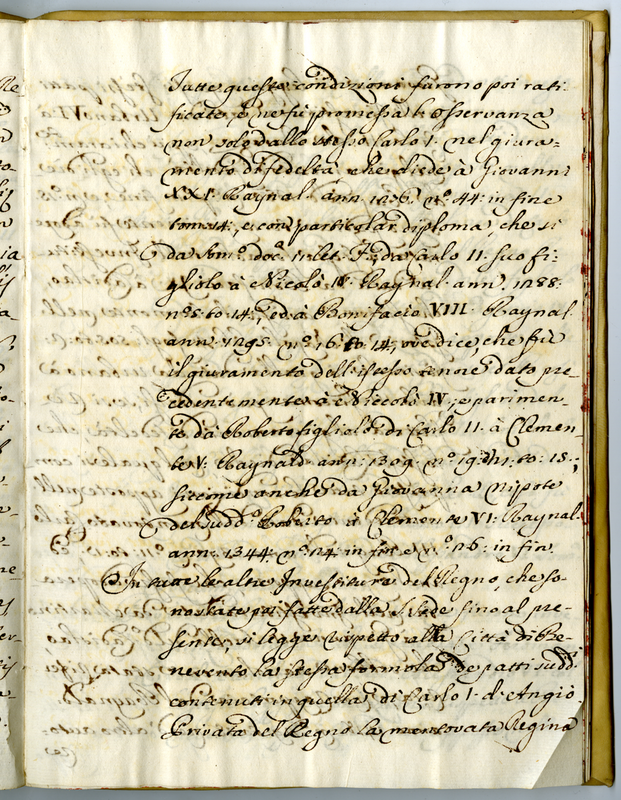 Tutte queste condizioni furono poi rati-
ficate, e ne fù promessa l'osservanza
non solo dallo stesso Carlo I. nel giura-
mento di fedeltà, che diede à Giovanni
XXI. Raynal. ann. 1276. nº. 44. in fine
tom. 14., e con particolar diploma, che si
da doc. 1. let. da Carlo II. suo fi-
gliolo à Nicolò IV. Raynal. ann. 1288.
nº. 5. to. 14., ed à Bonifacio VIII. Raynal.
ann. 1295. nº. 16. to. 14., ove dice, che fù
il giuramento dell'istesso tenore dato pre-
cedentemente à Niccolò IV.; e parimen-
te dà Roberto figliolo di Carlo II. à Clemen-
te V. Raynald. ann. 1309. nº. 19. to. 15.;
siccome anche da Giovanna nipote
del sudd.º Roberto à Clemente VI. Raynal.
ann. 1344. nº. 24. in fin. e nº. 26. in fin.
In tutte le altre Investiture del Regno, che so-
no state poi fatte dalla S. Sede sino al pre-
sente, si legge rispetto alla Città di Be-
nevento la stessa formola de patti sudd.
contenuti in quella di Carlo I. d'Angiò
Privata del Regno la mentovata Regina